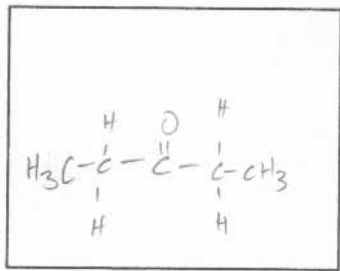 H O H
H3C-C-C-C-CH3
H H